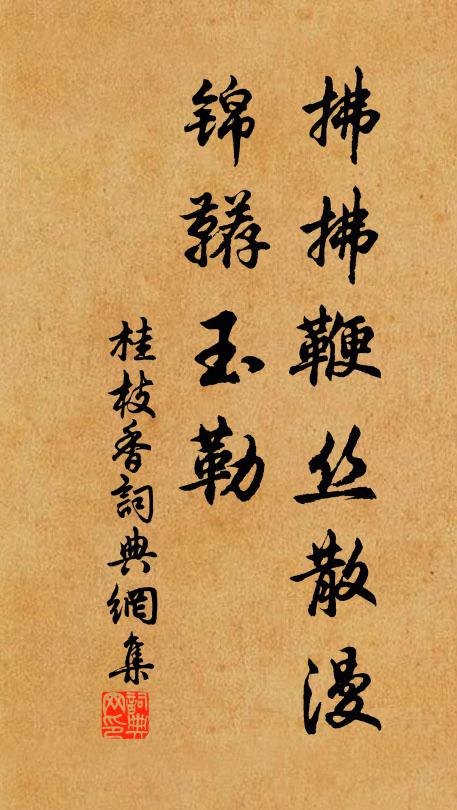 拂拂鞭丝散漫
锦鞯玉勒
桂枝香詞典網集
詞典
网印